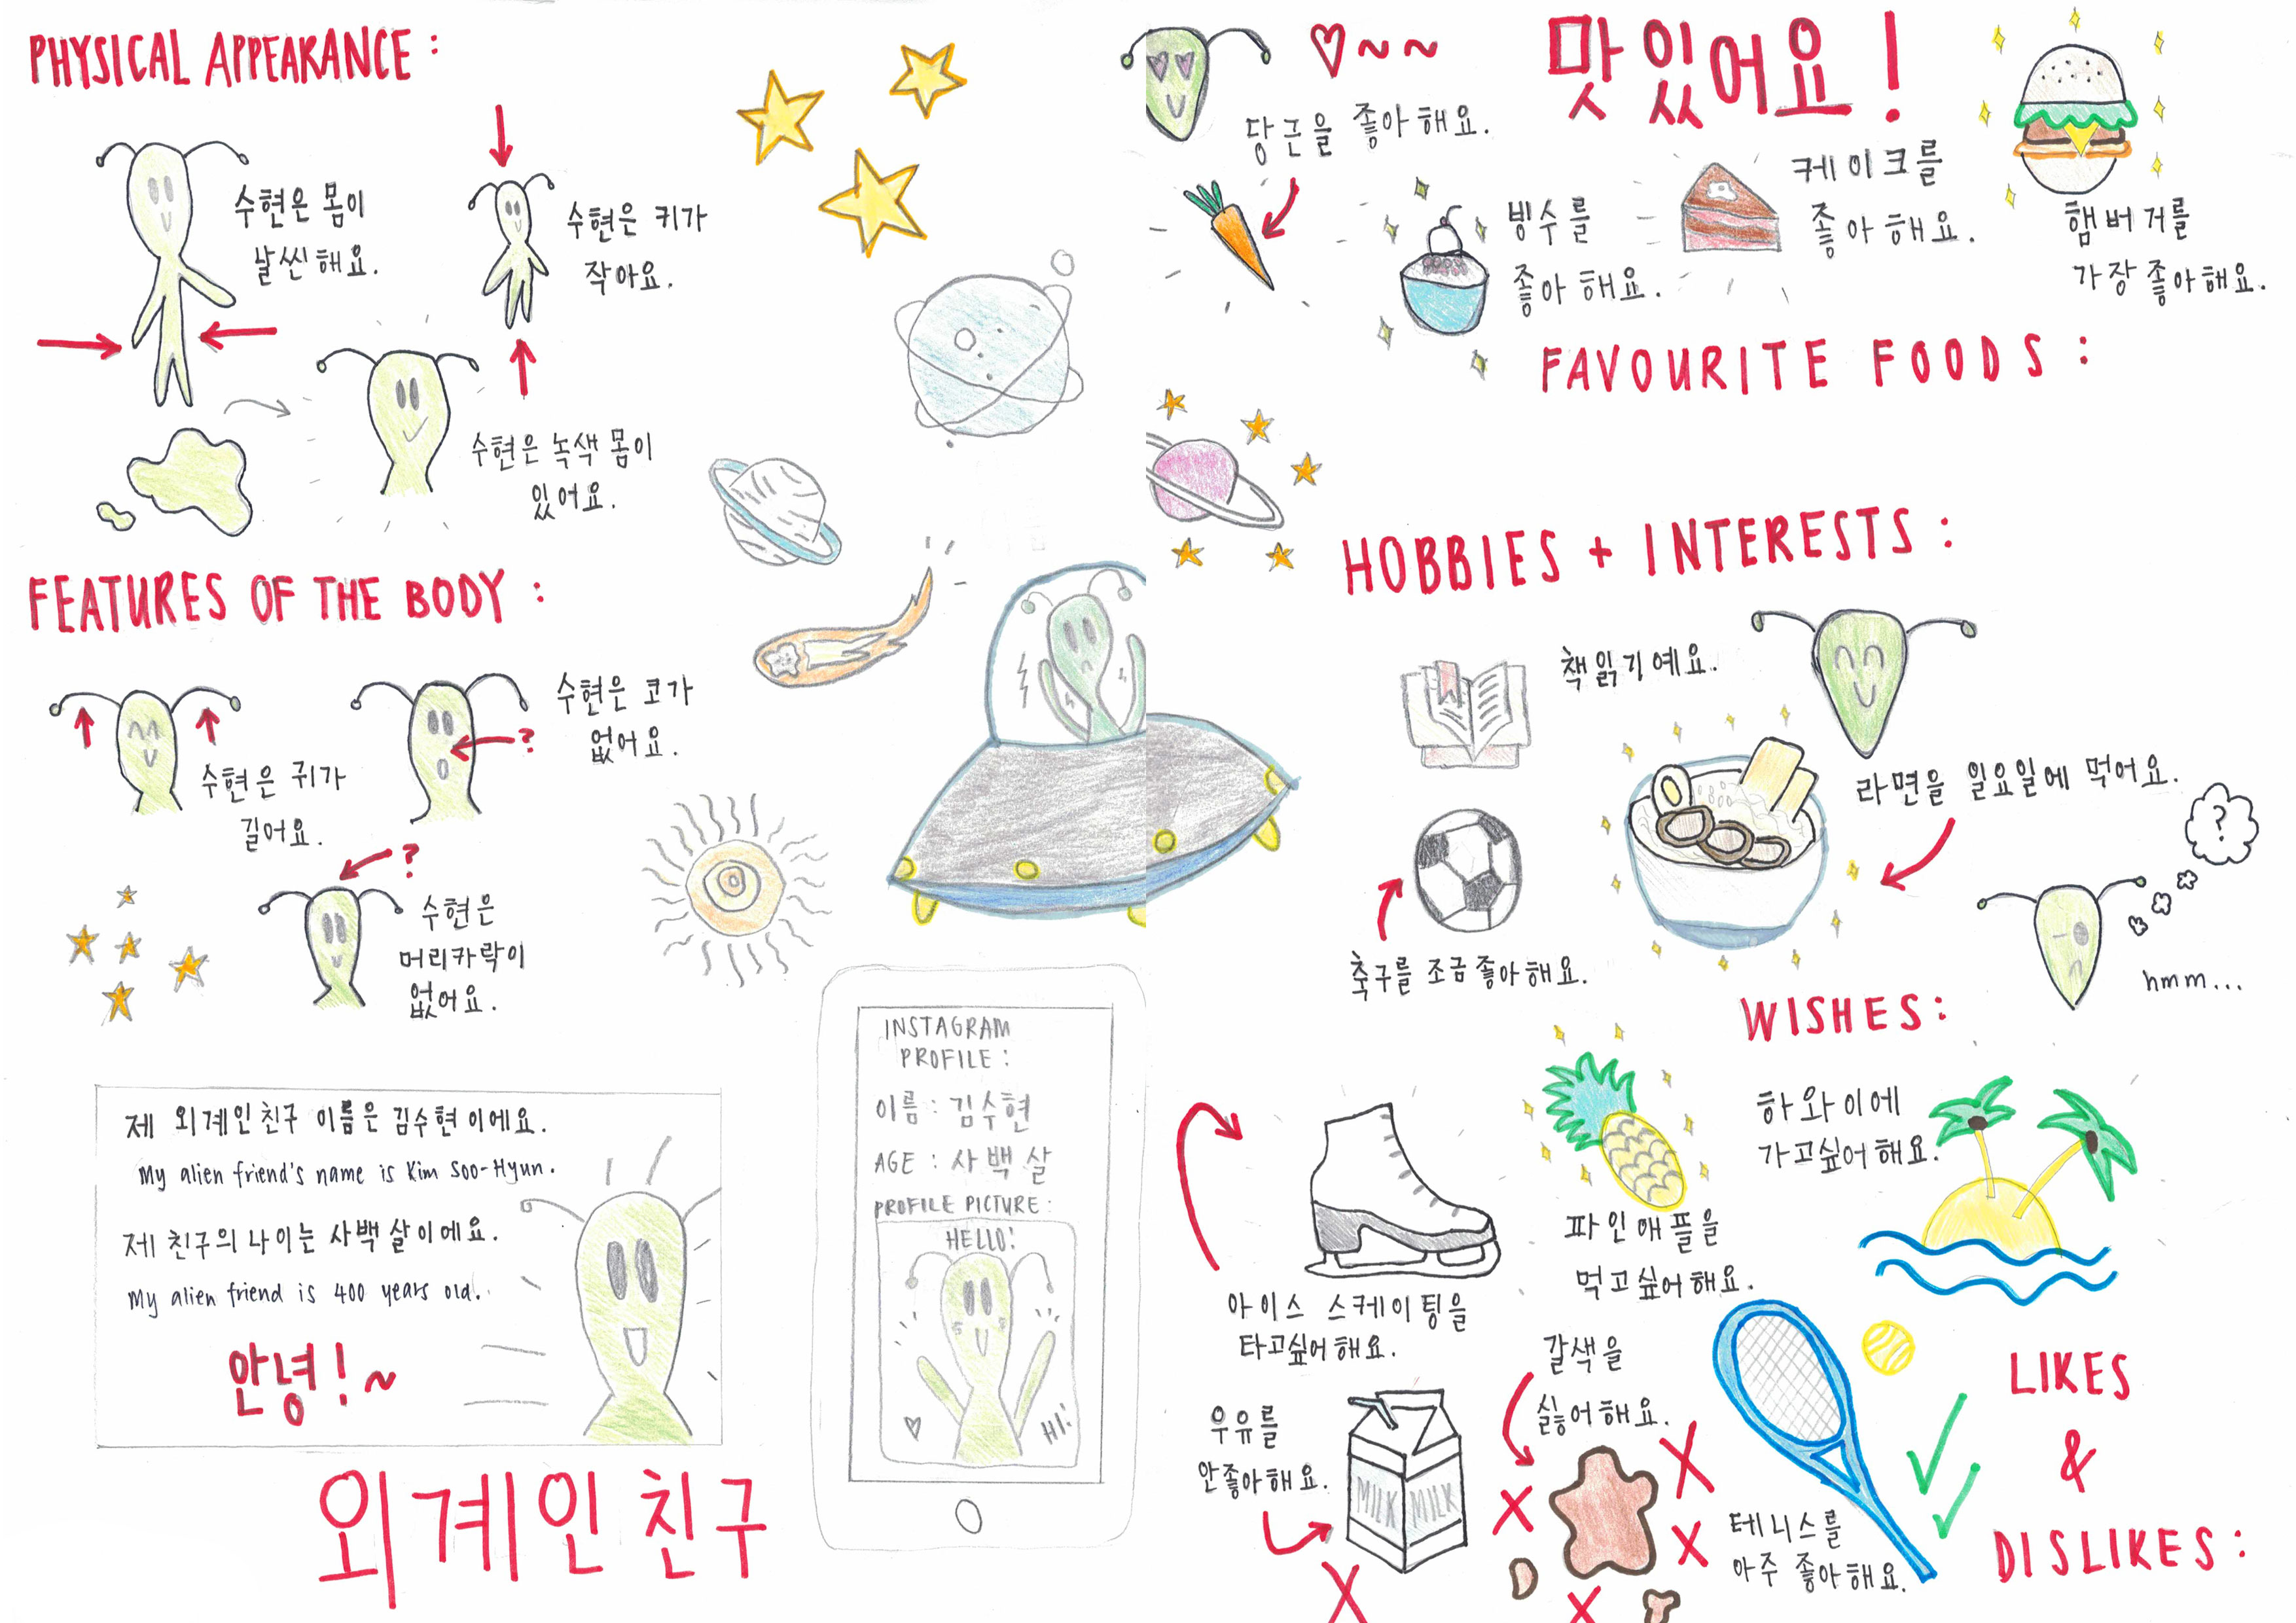 PHYSICAL APPEARANCE :
수현은 몸이
날씬해요.
수현은 키가
작아요.
수현은 녹색 몸이
있어요.
FEATURES OF THE BODY :
수현은 귀가
길어요.
?
수현은 코가
없어요.
?
수현은
머리카락이
없어요.
제 외계인 친구 이름은 김수현이에요.
My alien friend's name is Kim Soo-Hyun.
제 친구의 나이는 사백 살이에요.
My alien friend is 400 years old.
안녕!~
외계인 친구
INSTAGRAM
PROFILE :
이름 : 김수현
AGE : 사백 살
PROFILE PICTURE :
HELLO!
HI!
♡~~
당근을 좋아해요.
맛있어요!
빙수를
좋아해요.
케이크를
좋아해요.
햄버거를
가장 좋아해요.
FAVOURITE FOODS :
HOBBIES + INTERESTS :
책 읽기예요.
라면을 일요일에 먹어요.
축구를 조금 좋아해요.
?
hmm...
WISHES :
하와이에
가고싶어해요.
파인애플을
먹고싶어해요.
아이스 스케이팅을
타고싶어해요.
LIKES
&
DISLIKES :
우유를
안좋아해요.
MILK MILK
갈색을
싫어해요.
테니스를
아주 좋아해요.